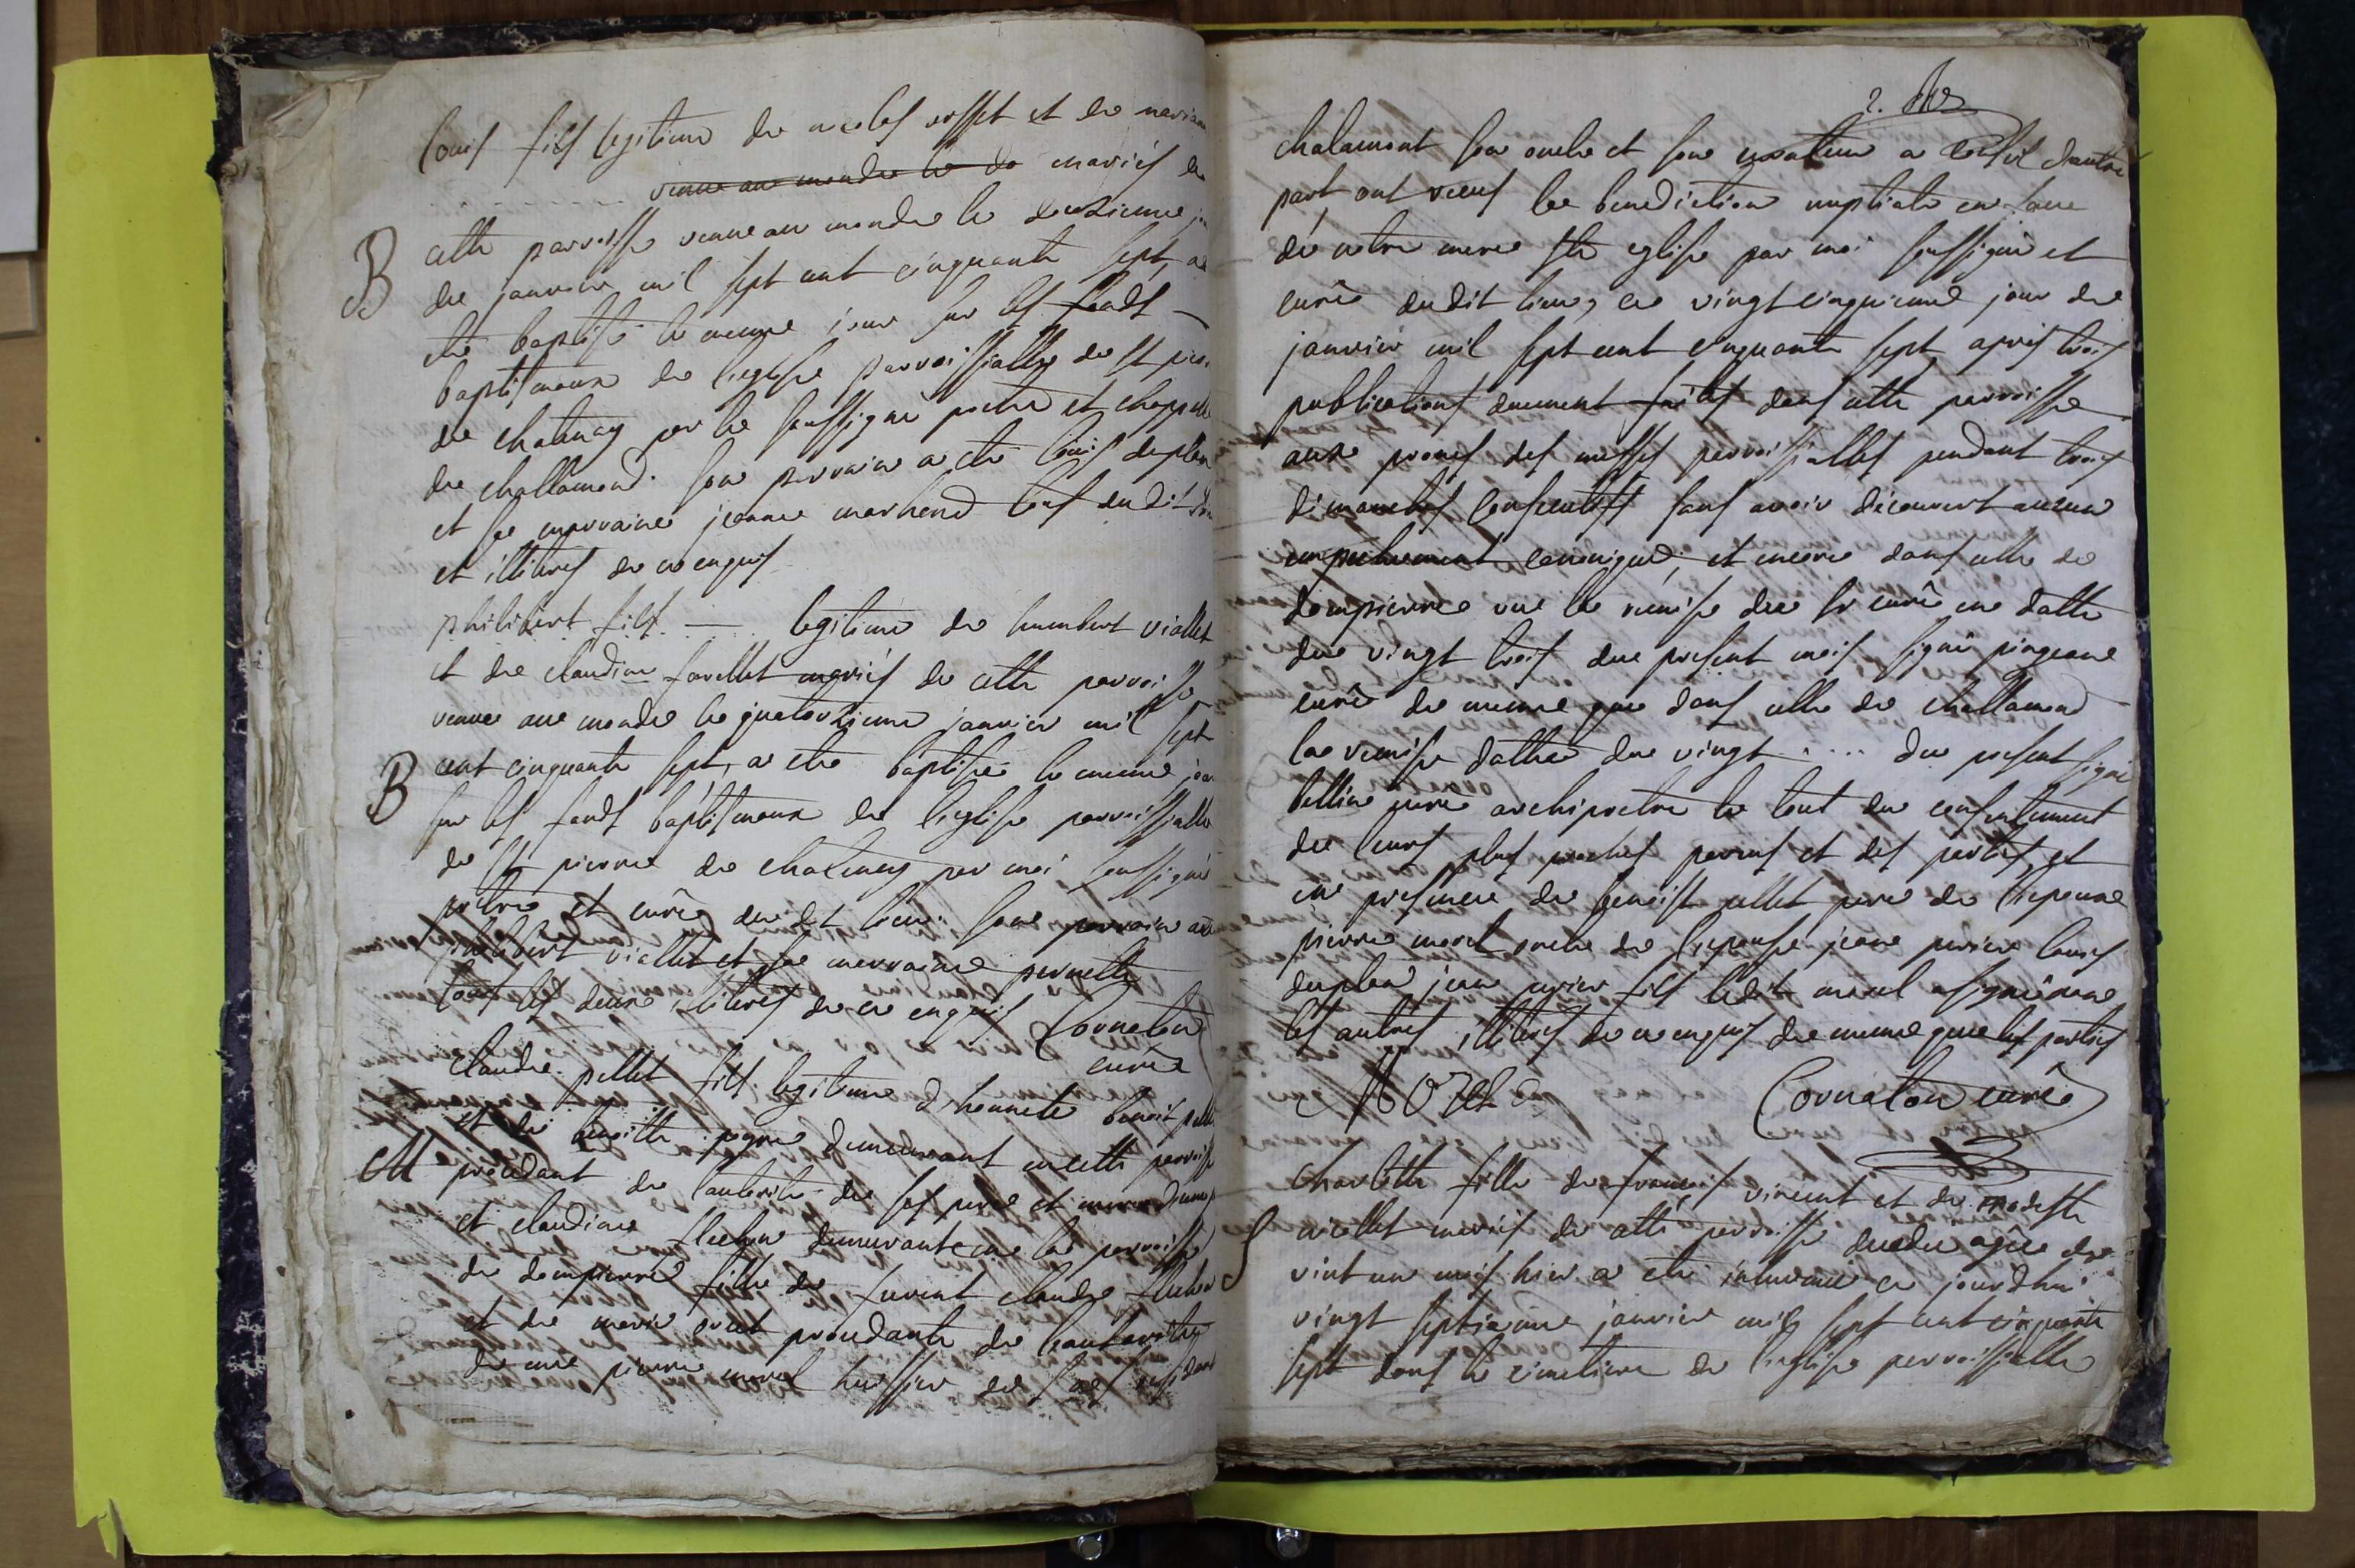 Louis fils legitime de nicolas rosset et de
venue au monde le do mariés de
B cette parroisse venu au monde le deuxieme
de janvier mil sept cent cinquante sept, a
ete baptisé le meme jour sur les fonds
baptismaux de l'eglise parroissialle de st
de chatenay par le soussigné pretre et
de challamond. son parrain a ete louis duplan
et sa marraine jeanne marhend tous dudit
et illiteres de ce enquis
philibert fils legitime de humbert viallet
et de claudine favellet mariés de cette parroisse
venue au monde le quatorzieme janvier mil sept
B cent cinquante sept, a ete baptisé le meme jour
sur les fonds baptismaux de l'eglise parroissialle
de st pierre de chatenay par moi soussigné
pretre et curé du dit lieu. son parrain a
philibert viallet et sa marraine pernette
tous les deux illiteres de ce enquis Cornaton
curé
claude pellet fils legitime d'honnete benoit pellet
et de benoitte demeurant en cette parroisse
M procedant de l'autorité de ses pere et mere d'une
et claudine demeurante en la parroisse
de dompierre fille de claude
et de marie procedante de l'autorité
de me pierre morel huissier
2.
chalamont son oncle et son curateur d'autre
part, ont receus la benediction nuptiale en face
de notre mere ste eglise par moi soussigné et
curé dudit lieu, ce vingt cinquieme jour de
janvier mil sept cent cinquante sept, apres trois
publications duement faites dans cette parroisse
aux prones des messes parroissialles pendant trois
dimanches consecutifs sans avoir decouvert aucun
empechement canonique, et encore dans celle de
dompierre vue la remise du sr curé en datte
du vingt trois du present mois signé
curé de meme que dans celle de challamond
la remise dattée du vingt .... du present signé
bellin curé archipretre le tout du consentement
de leurs plus proches parens et des parties, et
en presence de benoist pellet pere de l'epoux
pierre morel oncle de l'epouse jean louis
duplan jean fils ledit morel a signé non
les autres illiteres de ce enquis de meme que les parties
Morel Cornaton curé
charlotte fille de francois vincent et de modeste
S viollet mariés de cette parroisse decedée agée de
vint un mois hier a ete inhumée ce jourd'hui
vingt septieme janvier mil sept cent cinquante
sept dans le cimetiere de l'eglise parroissialle